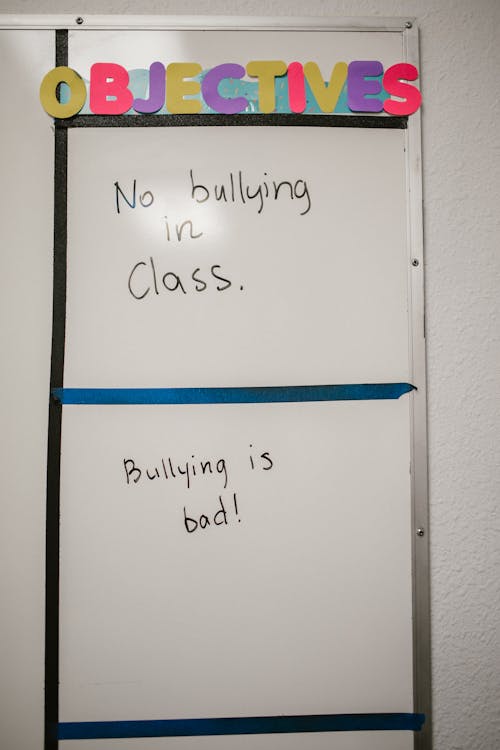 OBJECTIVES
No bullying
in
Class.
Bullying is
bad!